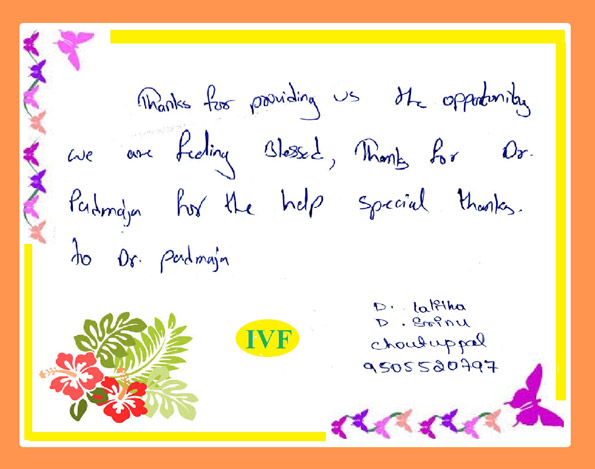 Thanks for providing us the opportunity
we are feeling Blessed, Thanks for Dr.
Padmaja for the help special thanks.
to Dr. padmaja
D. lalitha
D. Srinu
choutuppal
9505520797
IVF